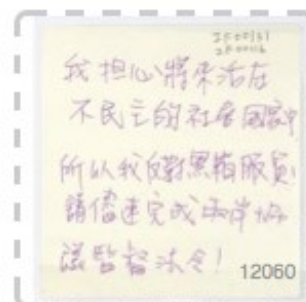 我担心將來活在
不民主的社會國家
所以我反對黑箱服貿!
請儘速完成兩岸協
議監督法令!
12060